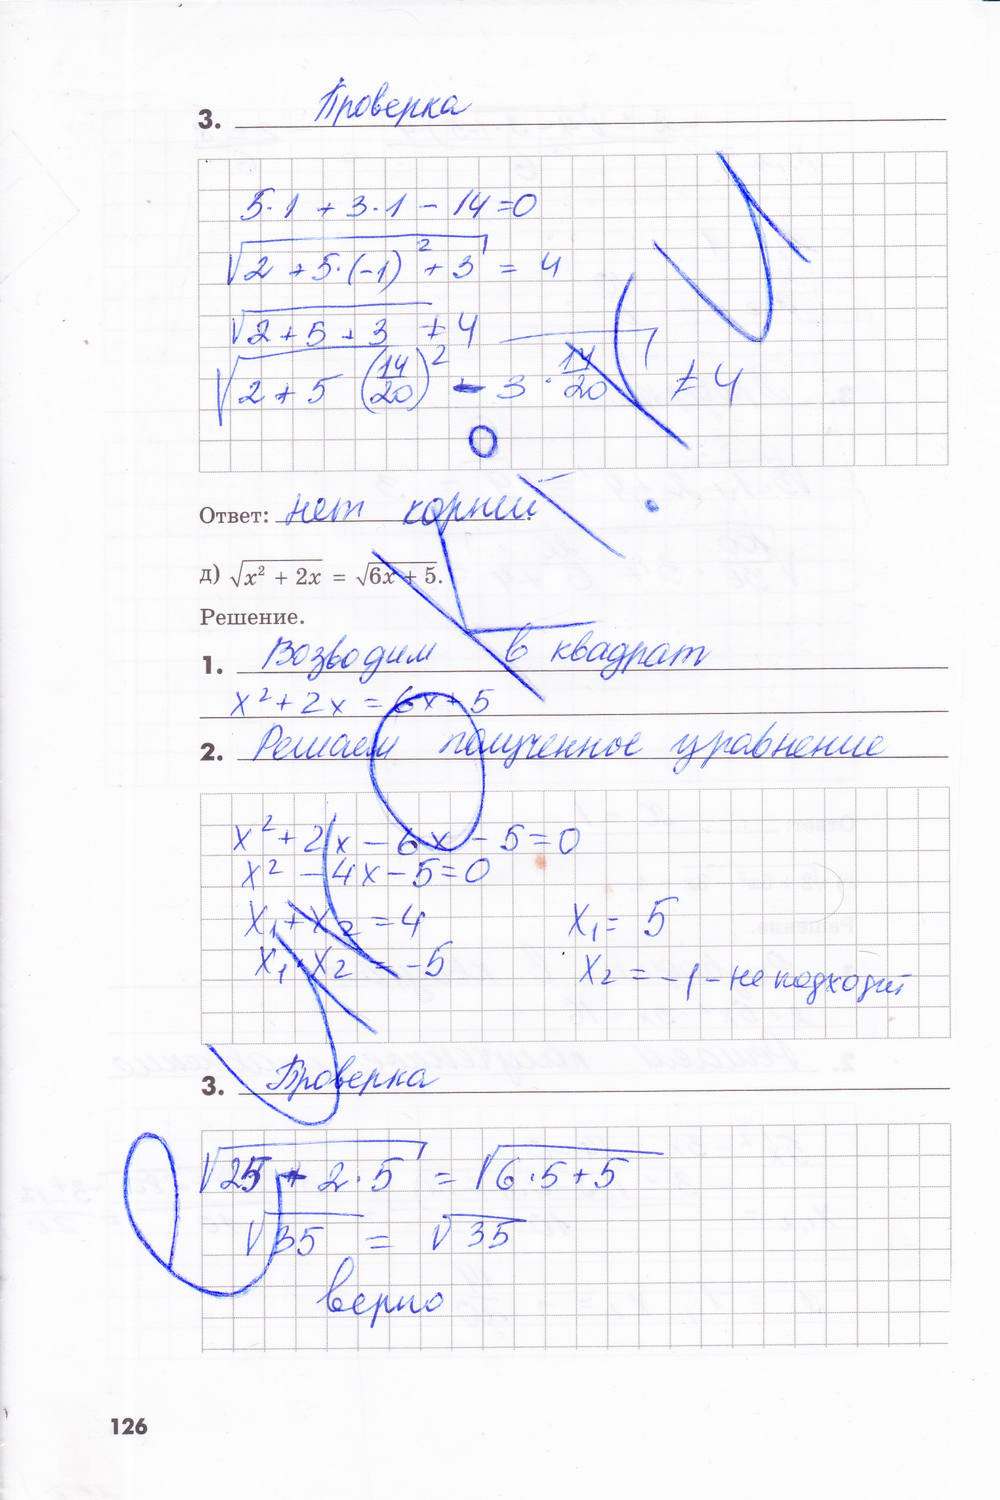 3. Проверка
5·1 + 3·1 − 14 = 0
√(2 + 5·(−1)² + 3) = 4
√(2 + 5 + 3) ≠ 4
√(2 + 5 (14/20)² − 3 · 14/20) ≠ 4
Ответ: нет корней.
д) √(x² + 2x) = √(6x + 5).
Решение.
1. Возводим в квадрат
x² + 2x = 6x + 5
2. Решаем полученное уравнение
x² + 2x − 6x − 5 = 0
x² − 4x − 5 = 0
x₁ + x₂ = 4 x₁ = 5
x₁ · x₂ = −5 x₂ = −1 − не подходит
3. Проверка
√(25 + 2·5) = √(6·5 + 5)
√35 = √35
верно
126